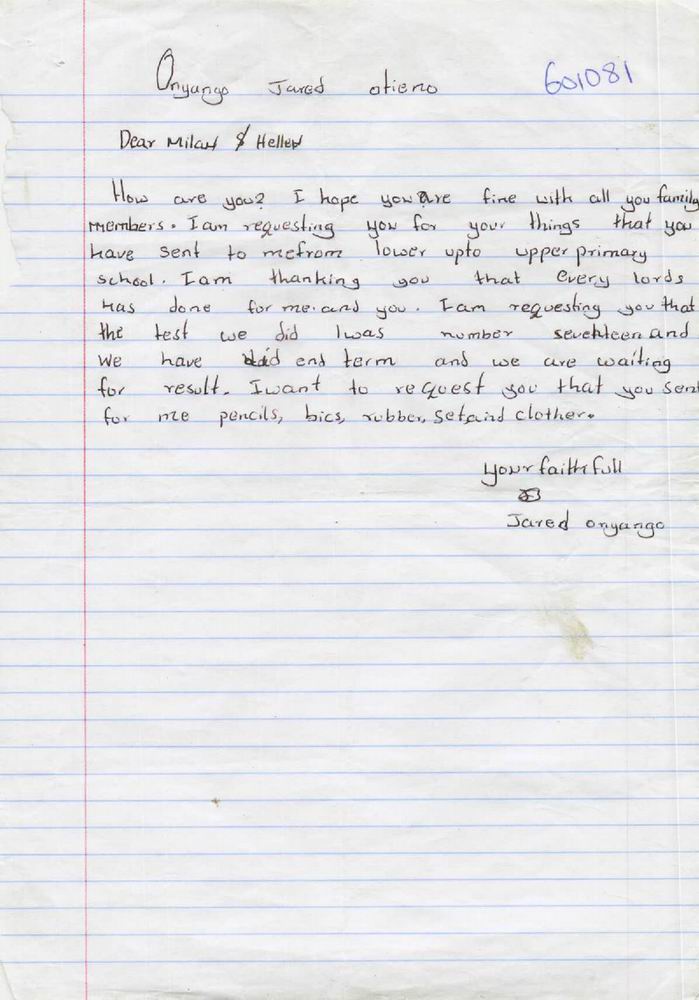 Onyango Jared otieno 601081
Dear Milan & Hellen
How are you? I hope you are fine with all you family
members. I am requesting you for your things that you
have sent to me from lower upto upper primary
school. I am thanking you that every lords
has done for me and you. I am requesting you that
the test we did I was number sevehteen and
we have did end term and we are waiting
for result. I want to request you that you sent
for me pencils, bics, rubber, set and clother.
your faithfull
Jared onyango